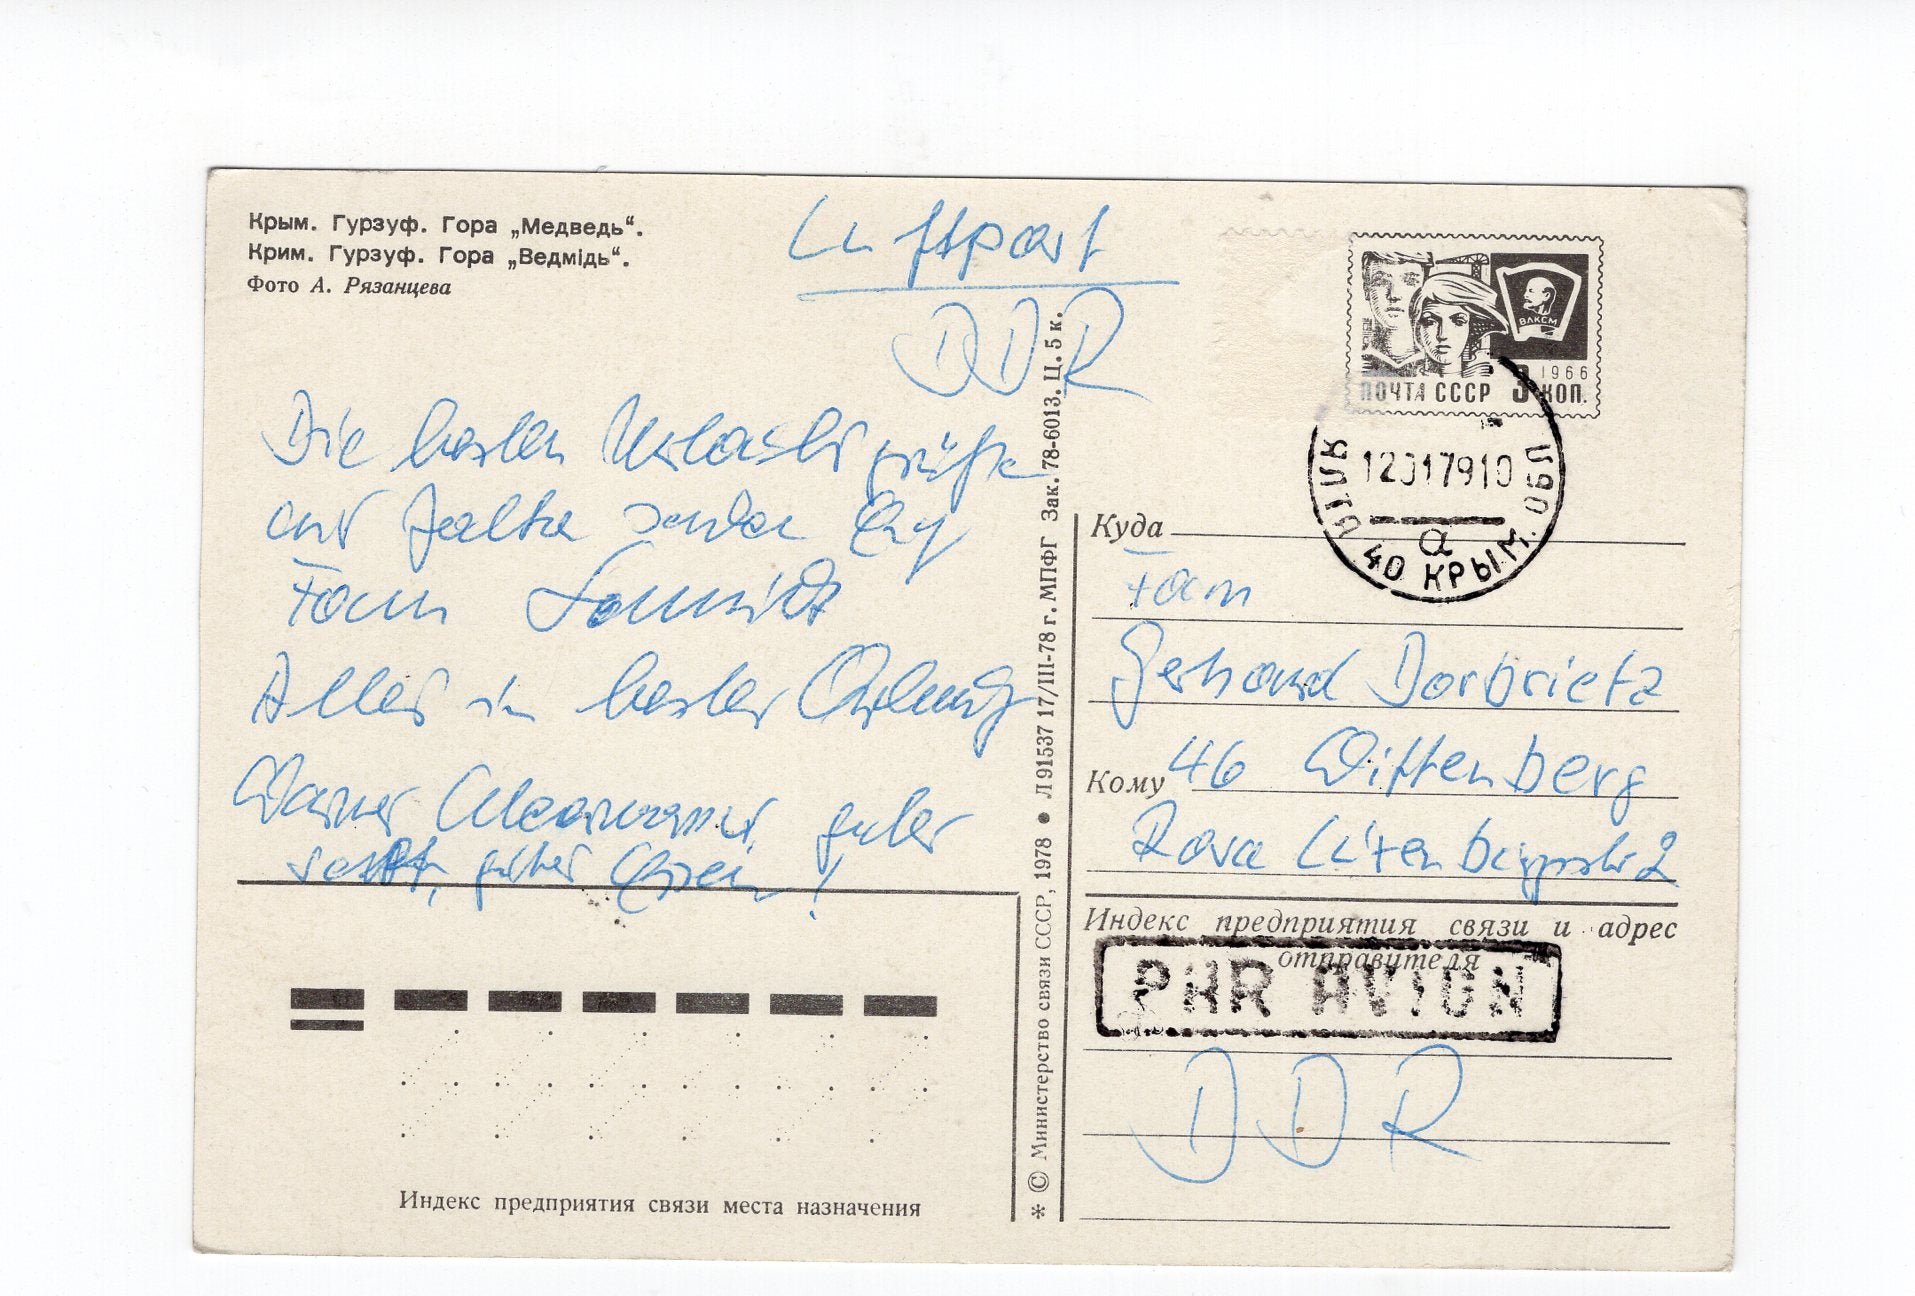 Крым. Гурзуф. Гора „Медведь“.
Крим. Гурзуф. Гора „Ведмідь“.
Фото А. Рязанцева
Luftpost
DDR
ПОЧТА СССР 3 КОП.
1966
ВЛКСМ
ЯЛТА
12017910
а
40 КРЫМ. ОБЛ
Die besten Urlaubsgrüße
aus Jalta senden
Fam Schmidt
Alles in bester Ordnung
guter
guter
Куда
Fam
Gerhard Dorbrietz
Кому 46 Wittenberg
Rosa Luxenburgstr 2
Индекс предприятия связи и адрес
отправителя
PAR AVION
DDR
Индекс предприятия связи места назначения
* © Министерство связи СССР, 1978 ● Л 91537 17/III-78 г. МПФГ Зак. 78-6013. Ц. 5 к.